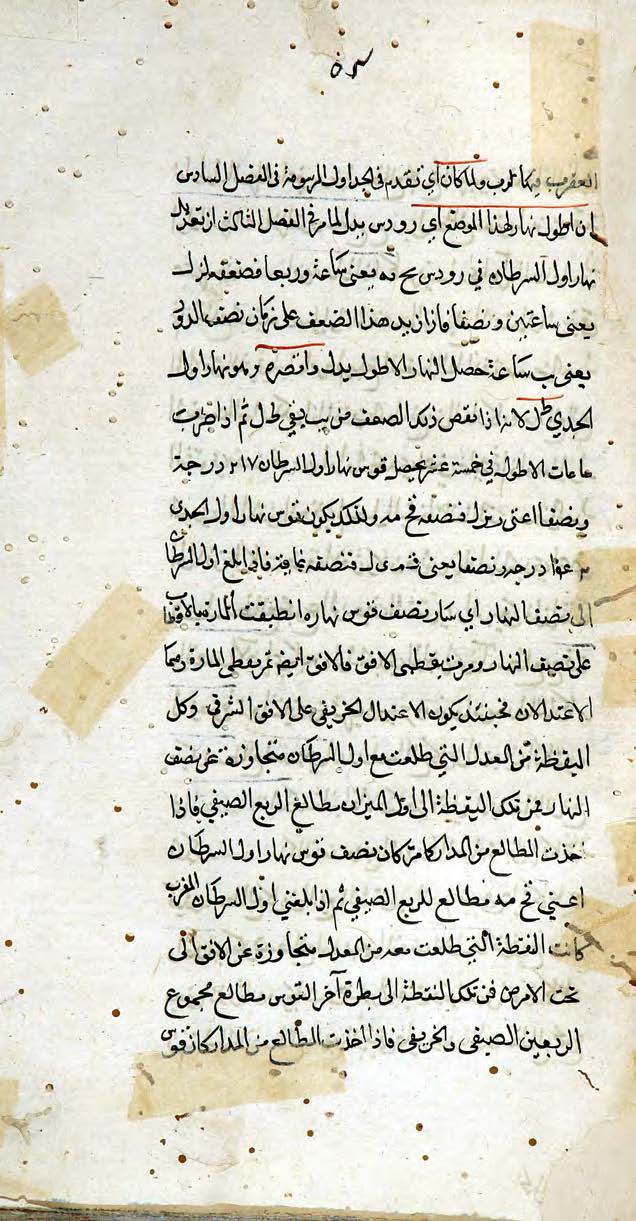 ٥٣
العقرب فيكا لرب ولما كان اي تقدم في الجداول المرسومة في الفصل السادس
ان اطول نهار لهذا الموضع اي رودس يدل لما مر في الفصل الثالث ان تعديل
نهار اول السرطان في رودس يح مه يعنى ساعة وربعا فضعفه لزل
يعنى ساعتين ونصفا فاذا زيد هذا الضعف على زمان نصف الدور
يعنى يب ساعة حصل النهار الاطول يدل واقصره وهو نهار اول
الجدي طل لانه اذا نقص ذلك الضعف من يب بقي طل ثم اذا ضربت
ساعات الاطول في خمسة عشر يحصل قوس نهار اول السرطان ٢١٧ درجة
ونصفا اعنى ريزل فنصفه قح مه ولذلك يكون قوس نهار اول الجدى
درجه ونصفا يعنى فنصفه فاذا بلغ اول السرطان
الى نصف النهار اي سار نصف قوس نهاره انطبقت المارة بالاقطاب
على نصف النهار ومرت بقطبى الافق فالافق ايضا تمر بقطبي المارة وهما
الاعتدالان فحينئذ يكون الاعتدال الخريفي على الافق الشرقي وكل
النقطة من المعدل التي طلعت مع اول السرطان متجاوزة عن نصف
النهار فمن تلك النقطة الى اول الميزان مطالع الربع الصيفي فاذا
اخذت المطالع من المدار كما مر كان نصف قوس نهار اول السرطان
اعني قح مه مطالع للربع الصيفي ثم اذا بلغ اول السرطان المغرب
كانت النقطة التي طلعت معه من المعدل متجاوزة عن الافق الى
تحت الارض فمن تلك النقطة الى آخر القوس مطالع مجموع
الربعين الصيفى والخريفى فاذا اخذت المطالع من المدار كان قوس